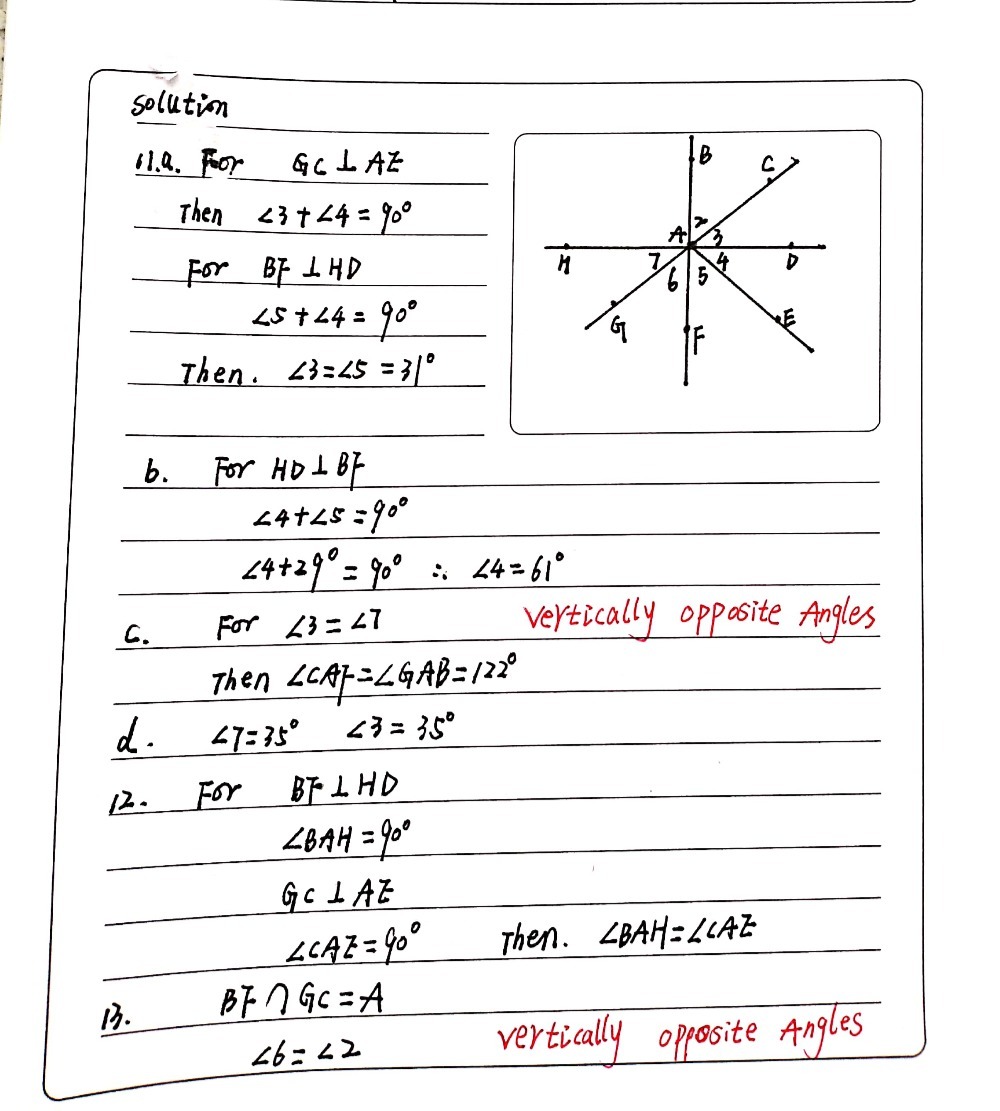 solution
11.a. For GC⊥AE
Then ∠3+∠4=90°
For BF⊥HD
∠5+∠4=90°
Then. ∠3=∠5=31°
B
C
A 2 3
H 7 4 D
6 5
G E
F
b. For HD⊥BF
∠4+∠5=90°
∠4+29°=90° ∴ ∠4=61°
c. For ∠3=∠7 vertically opposite Angles
Then ∠CAF=∠GAB=122°
d. ∠7=35° ∠3=35°
12. For BF⊥HD
∠BAH=90°
GC⊥AE
∠CAE=90° Then. ∠BAH=∠CAE
13. BF∩GC=A
∠6=∠2 vertically opposite Angles